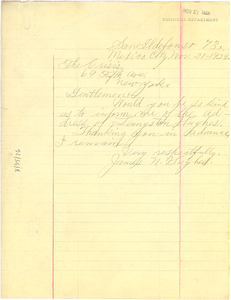 NOV 27 1934
EDITORIAL DEPARTMENT
San Ildefonso 73,
Mexico City, Nov. 21-1934
The Crisis,
69 5th Ave,
New York.
Gentlemen:
Would you be so kind
us to inform me of the ad-
dress of Langston Hughes.
Thanking you in advance
I remain,
Very respectfully,
James N.